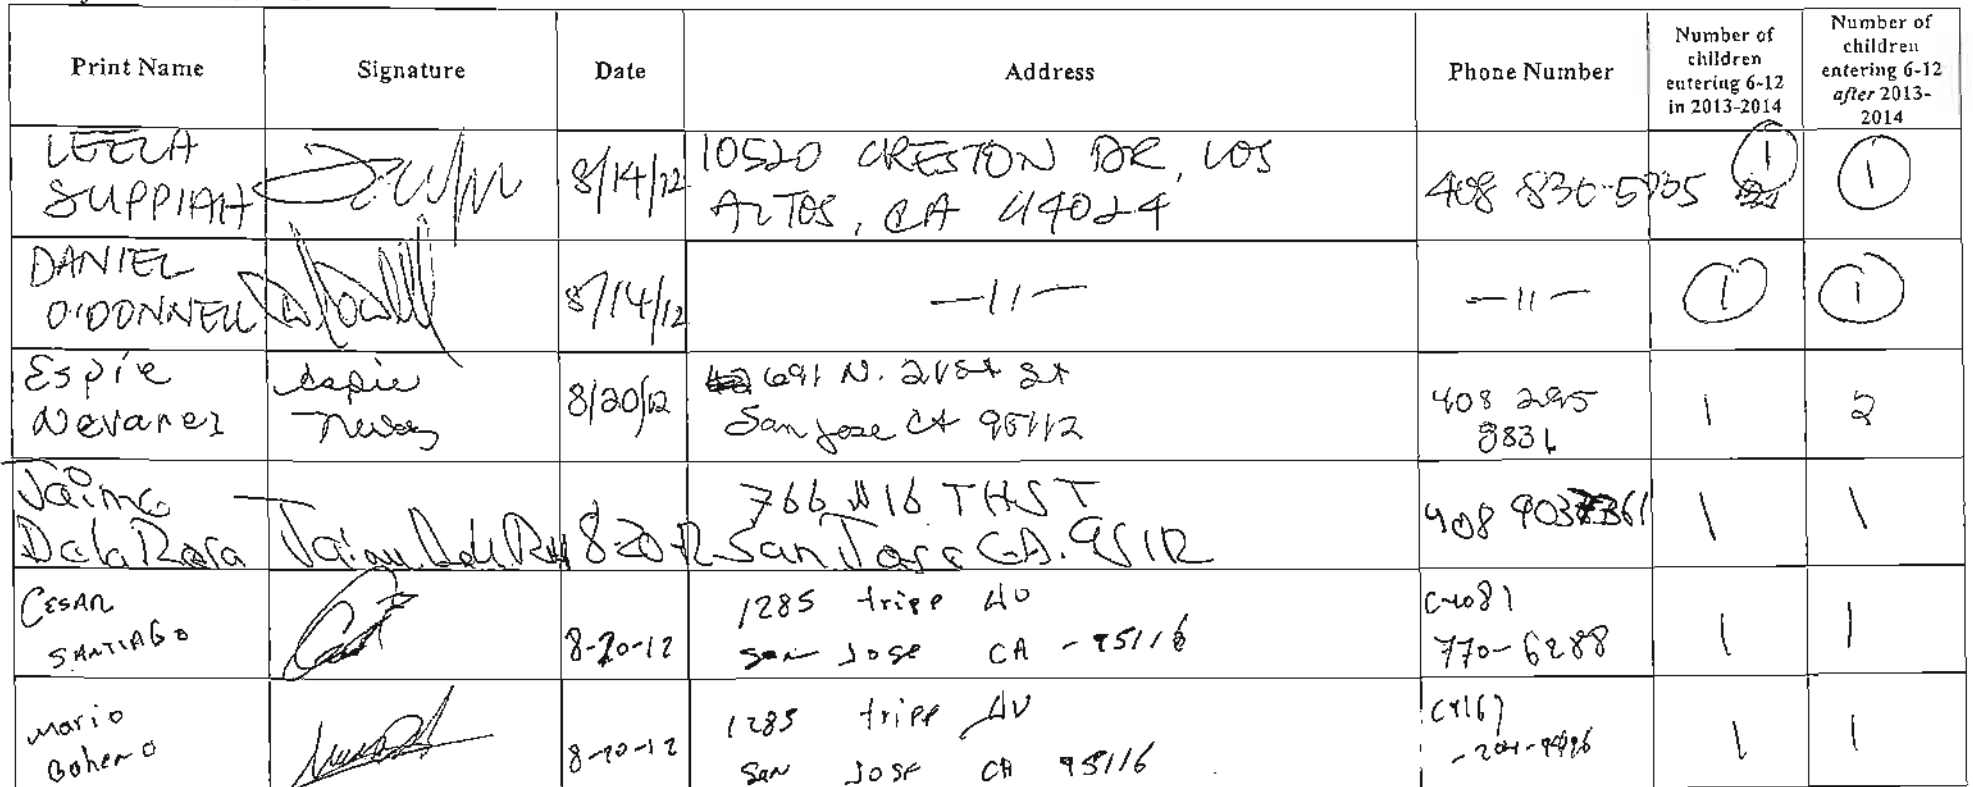 Print Name
Signature
Date
Address
Phone Number
Number of
children
entering 6-12
in 2013-2014
Number of
children
entering 6-12
after 2013-
2014
LEELA
SUPPIAH
8/14/12
10520 CRESTON DR, LOS
ALTOS, CA 94024
408 830-5935
1
1
DANIEL
O'DONNELL
8/14/12
—11—
—11—
1
1
Espie
Nevarez
Espie
8/20/12
691 N. 21st St
San Jose CA 95112
408 295
9831
1
2
Jaime
DelaRosa
8-20-12
766 N 16 TH ST
San Jose CA. 95112
408 903 7361
1
1
CESAR
SANTIAGO
8-20-12
1285 tripp AV
San Jose CA - 95116
(408)
770-6288
1
1
Mario
8-20-12
1285 tripp AV
San Jose CA 95116
1
1